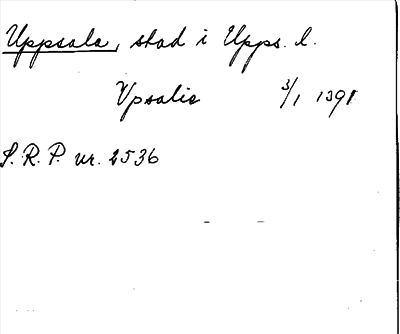 Uppsala, stad i Upps. l.
Vpsalie 3/1 1391
S.R.P. nr. 2536